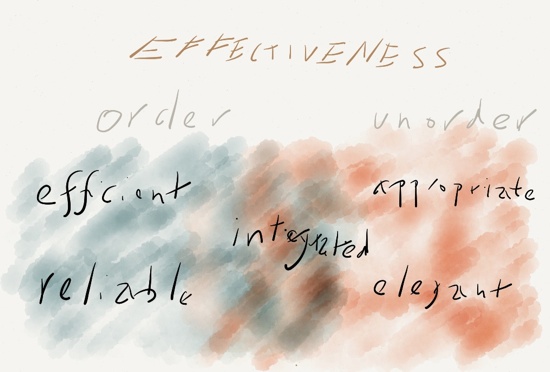 EFFECTIVENESS
order unorder
efficient appropriate
integrated
reliable elegant